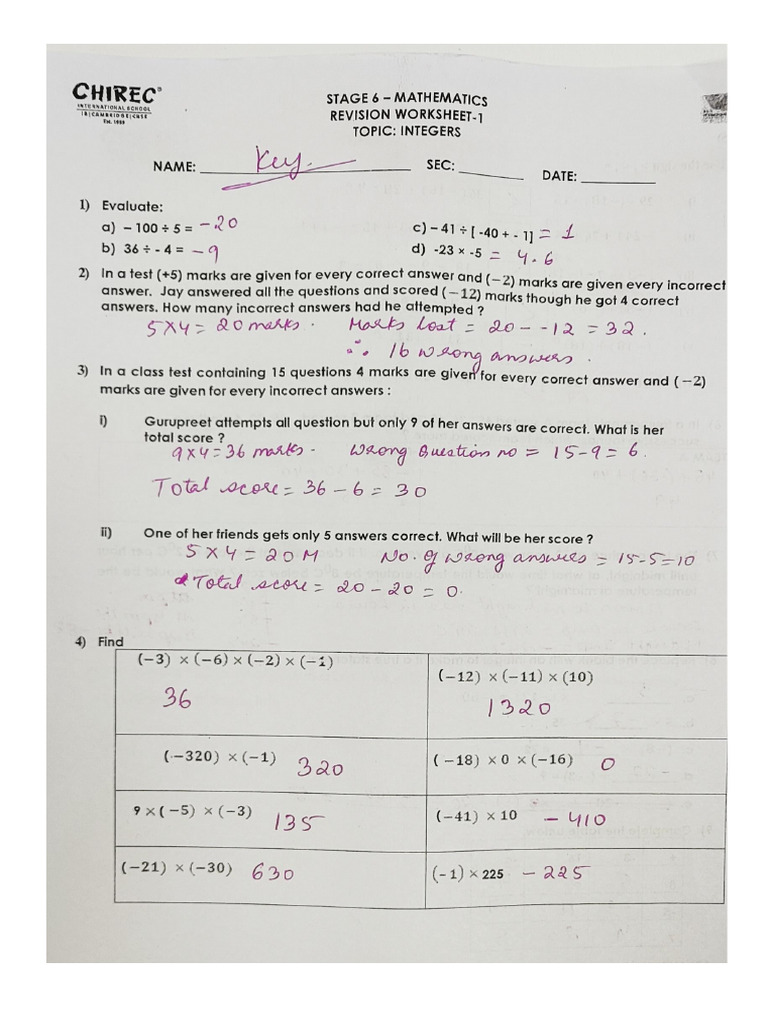 CHIREC®
INTERNATIONAL SCHOOL
IB|CAMBRIDGE|CBSE
Est. 1989
STAGE 6 – MATHEMATICS
REVISION WORKSHEET-1
TOPIC: INTEGERS
NAME: Key. SEC: DATE:
1) Evaluate:
a) – 100 ÷ 5 = -20 c) – 41 ÷ [ -40 + - 1] = 1
b) 36 ÷ - 4 = - 9 d) -23 × -5 = 4.6
2) In a test (+5) marks are given for every correct answer and (−2) marks are given every incorrect
answer. Jay answered all the questions and scored (−12) marks though he got 4 correct
answers. How many incorrect answers had he attempted ?
5 X 4 = 20 marks. Marks Lost = 20 - -12 = 32.
∴ 16 wrong answers.
3) In a class test containing 15 questions 4 marks are given for every correct answer and (−2)
marks are given for every incorrect answers :
i) Gurupreet attempts all question but only 9 of her answers are correct. What is her
total score ?
9 x 4 = 36 marks. Wrong Question no = 15-9 = 6.
Total score = 36 - 6 = 30
ii) One of her friends gets only 5 answers correct. What will be her score ?
5 X 4 = 20 M No. of wrong answers = 15-5=10
Total score = 20 - 20 = 0.
4) Find
(−3) × (−6) × (−2) × (−1) (−12) × (−11) × (10)
36 1320
(−320) × (−1) 320 (−18) × 0 × (−16) 0
9 × (−5) × (−3) 135 (−41) × 10 - 410
(−21) × (−30) 630 (-1) × 225 - 225